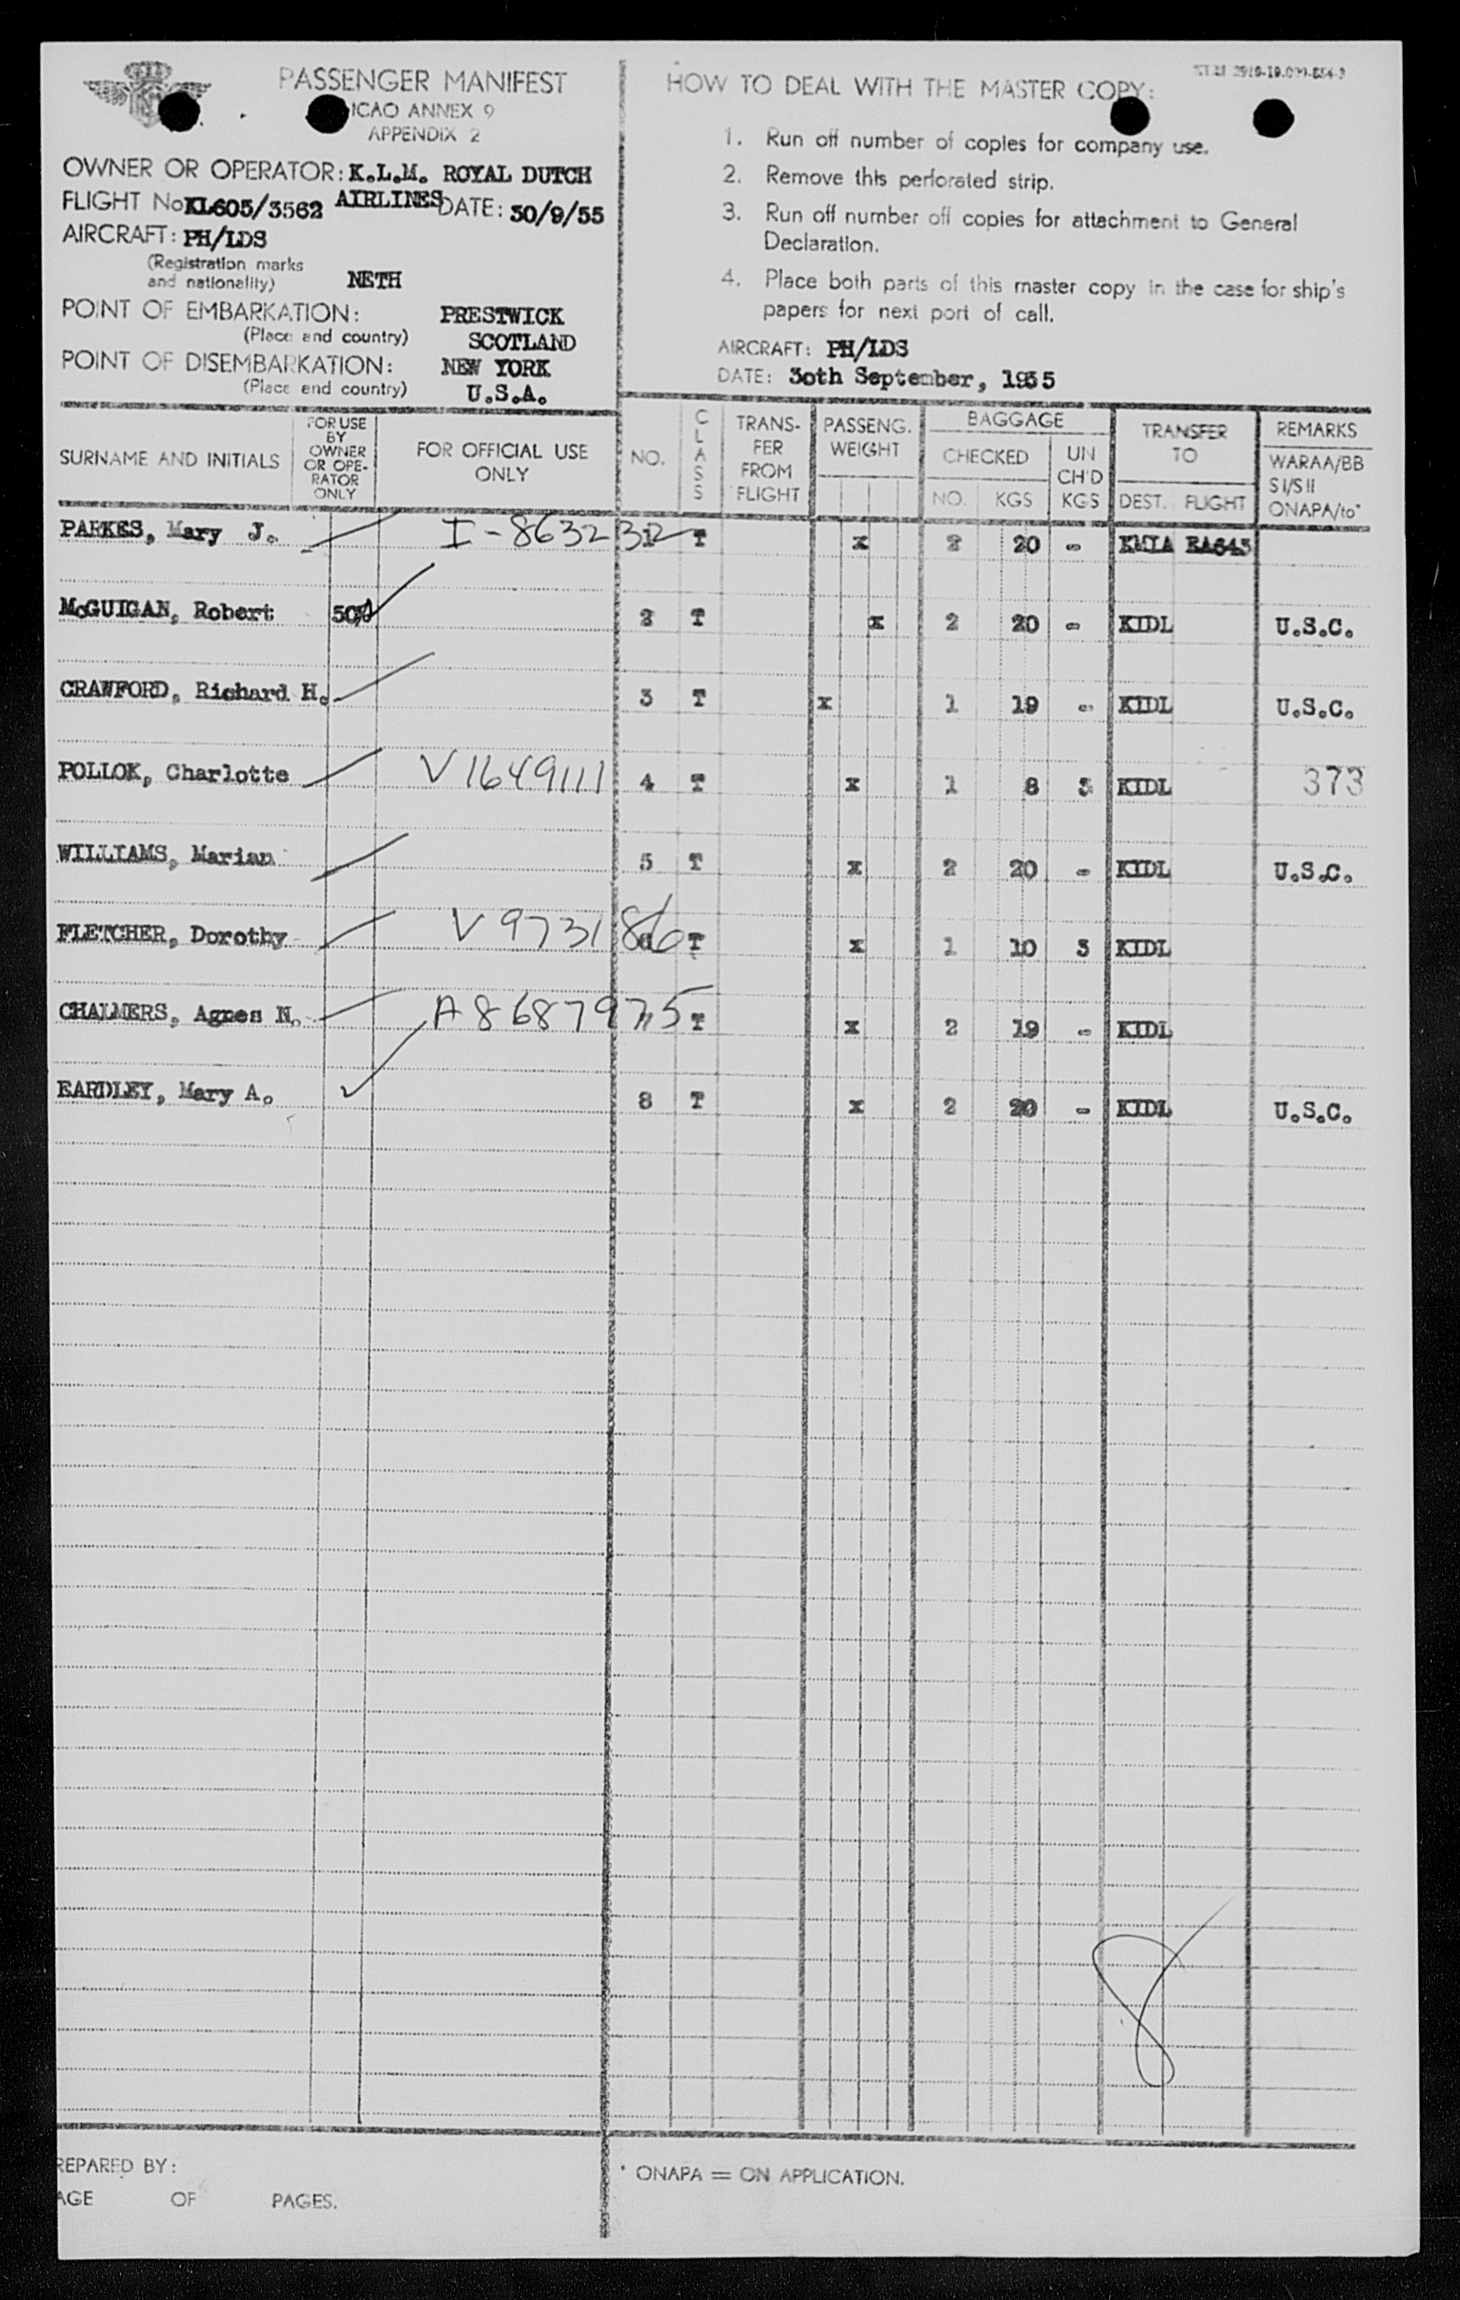 PASSENGER MANIFEST
ICAO ANNEX 9
APPENDIX 2
OWNER OR OPERATOR: K.L.M. ROYAL DUTCH
AIRLINES
FLIGHT No KL605/3562 DATE: 30/9/55
AIRCRAFT: PH/LDS
(Registration marks
and nationality) NETH
POINT OF EMBARKATION: PRESTWICK
(Place and country) SCOTLAND
POINT OF DISEMBARKATION: NEW YORK
(Place and country) U.S.A.
HOW TO DEAL WITH THE MASTER COPY:
1. Run off number of copies for company use.
2. Remove this perforated strip.
3. Run off number off copies for attachment to General
Declaration.
4. Place both parts of this master copy in the case for ship's
papers for next port of call.
AIRCRAFT: PH/LDS
DATE: 30th September, 1955
SURNAME AND INITIALS
FOR USE
BY
OWNER
OR OPE-
RATOR
ONLY
FOR OFFICIAL USE
ONLY
NO.
CLASS
TRANS-
FER
FROM
FLIGHT
PASSENG.
WEIGHT
BAGGAGE
CHECKED
NO. KGS
UN
CH'D
KGS
TRANSFER
TO
DEST. FLIGHT
REMARKS
WARAA/BB
SI/SII
ONAPA/to*
PARKES, Mary J. I-8632312 1 T x 2 20 - KMIA EA643
McGUIGAN, Robert 50% 2 T x 2 20 - KIDL U.S.C.
CRAWFORD, Richard H. 3 T x 1 19 - KIDL U.S.C.
POLLOK, Charlotte V1649111 4 T x 1 8 3 KIDL 373
WILLIAMS, Marian 5 T x 2 20 - KIDL U.S.C.
FLETCHER, Dorothy V973186 6 T x 1 10 3 KIDL
CHALMERS, Agnes N. A8687975 7 T x 2 19 - KIDL
EARDLEY, Mary A. 8 T x 2 20 - KIDL U.S.C.
8
REPARED BY:
AGE OF PAGES.
* ONAPA = ON APPLICATION.